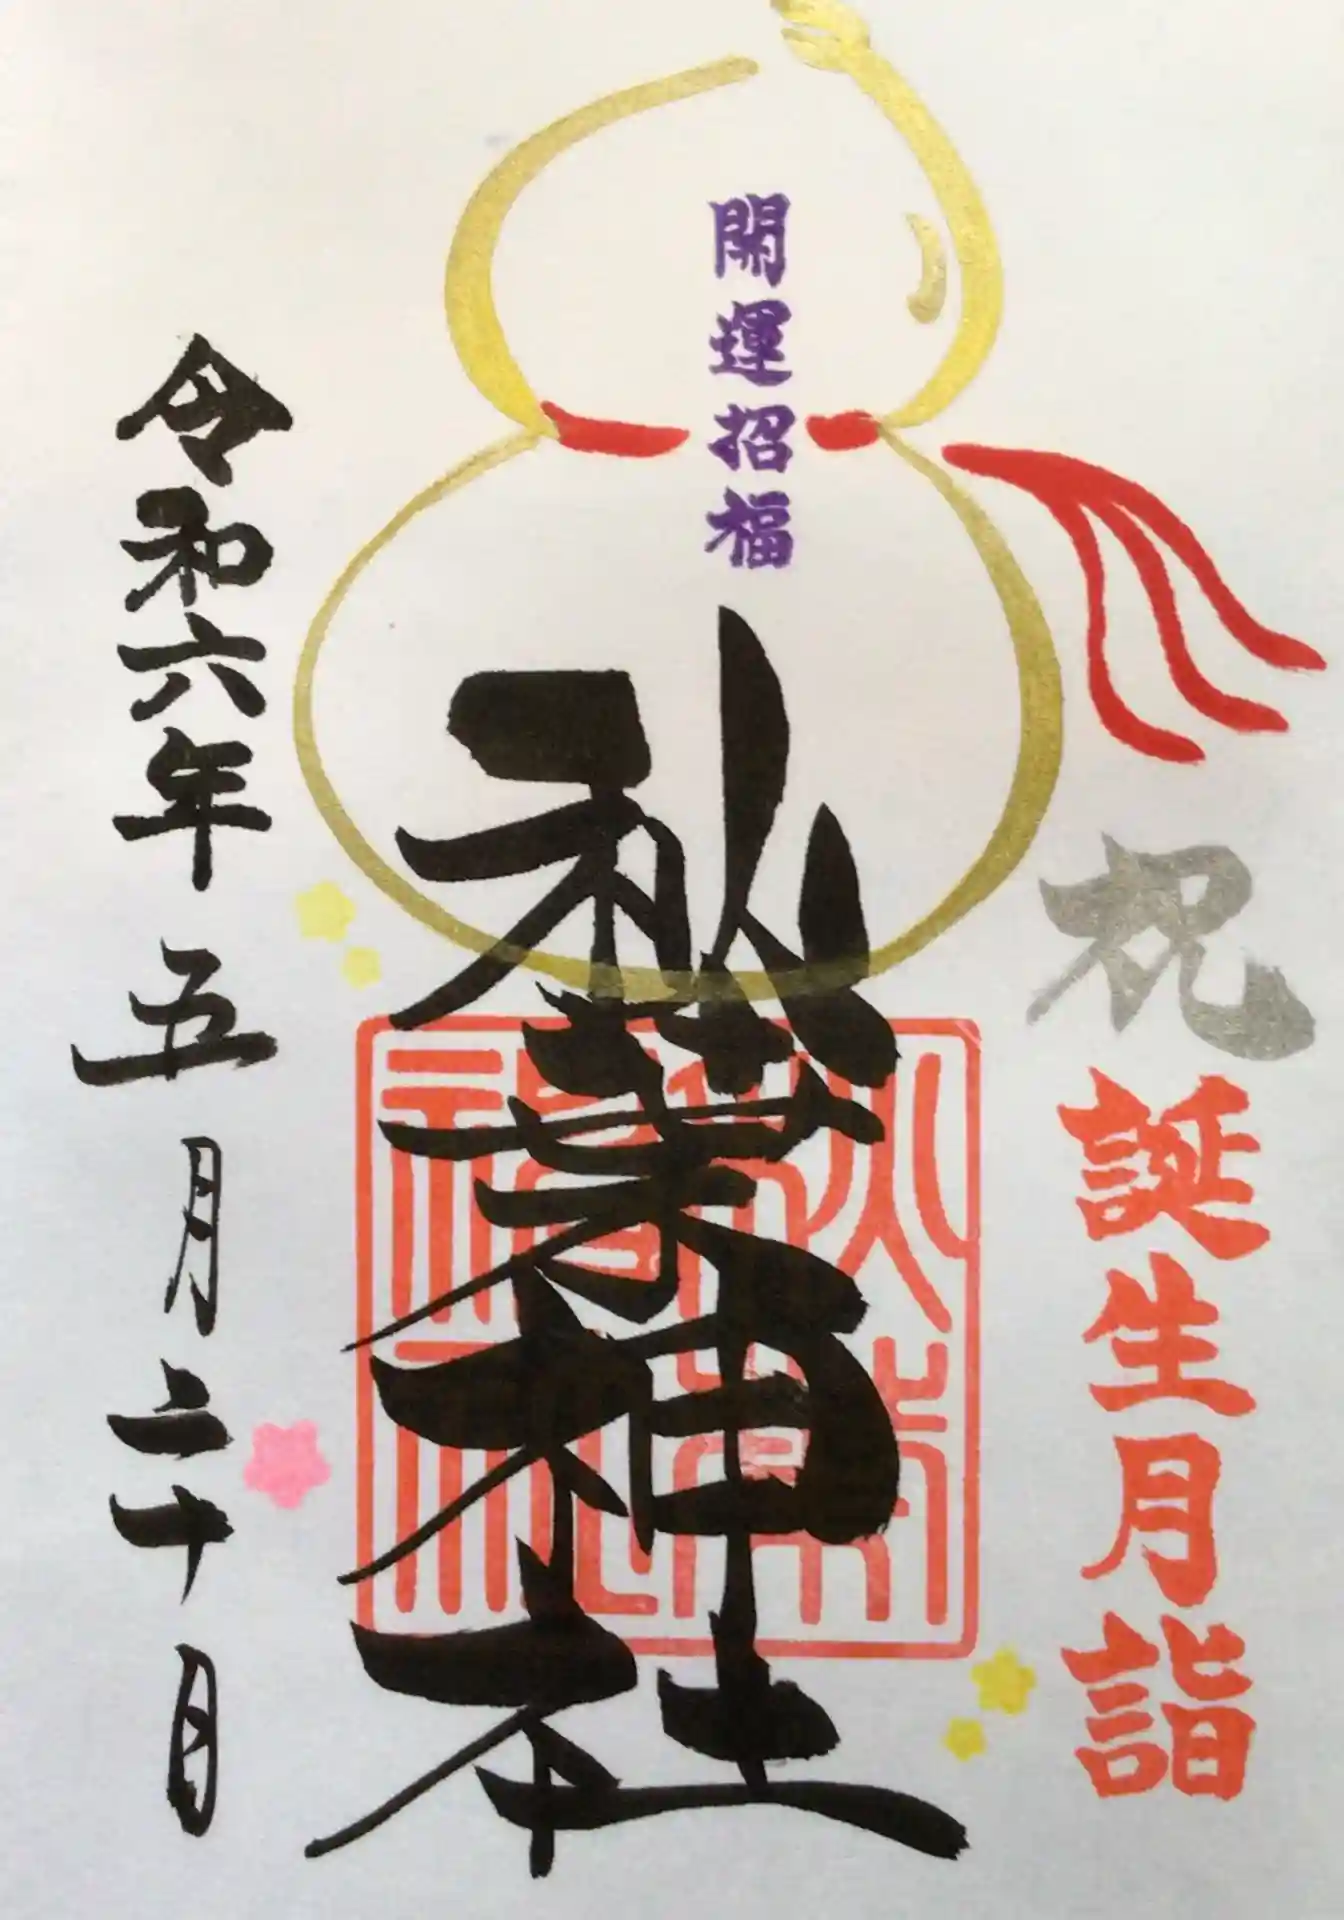 祝
誕生月詣
開運招福
秋葉神社
令和六年五月二十日